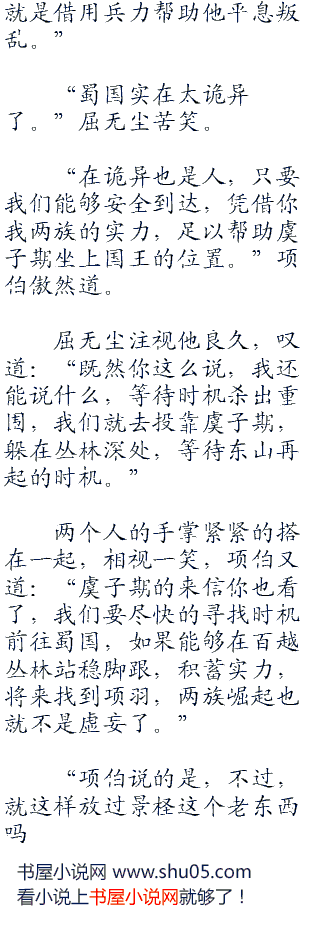 就是借用兵力帮助他平息叛
乱。”
“蜀国实在太诡异
了。”屈无尘苦笑。
“在诡异也是人，只要
我们能够安全到达，凭借你
我两族的实力，足以帮助虞
子期坐上国王的位置。”项
伯傲然道。
屈无尘注视他良久，叹
道：“既然你这么说，我还
能说什么，等待时机杀出重
围，我们就去投靠虞子期，
躲在丛林深处，等待东山再
起的时机。”
两个人的手掌紧紧的搭
在一起，相视一笑，项伯又
道：“虞子期的来信你也看
了，我们要尽快的寻找时机
前往蜀国，如果能够在百越
丛林站稳脚跟，积蓄实力，
将来找到项羽，两族崛起也
就不是虚妄了。”
“项伯说的是，不过，
就这样放过景柽这个老东西
吗
书屋小说网 www.shu05.com
看小说上书屋小说网就够了！